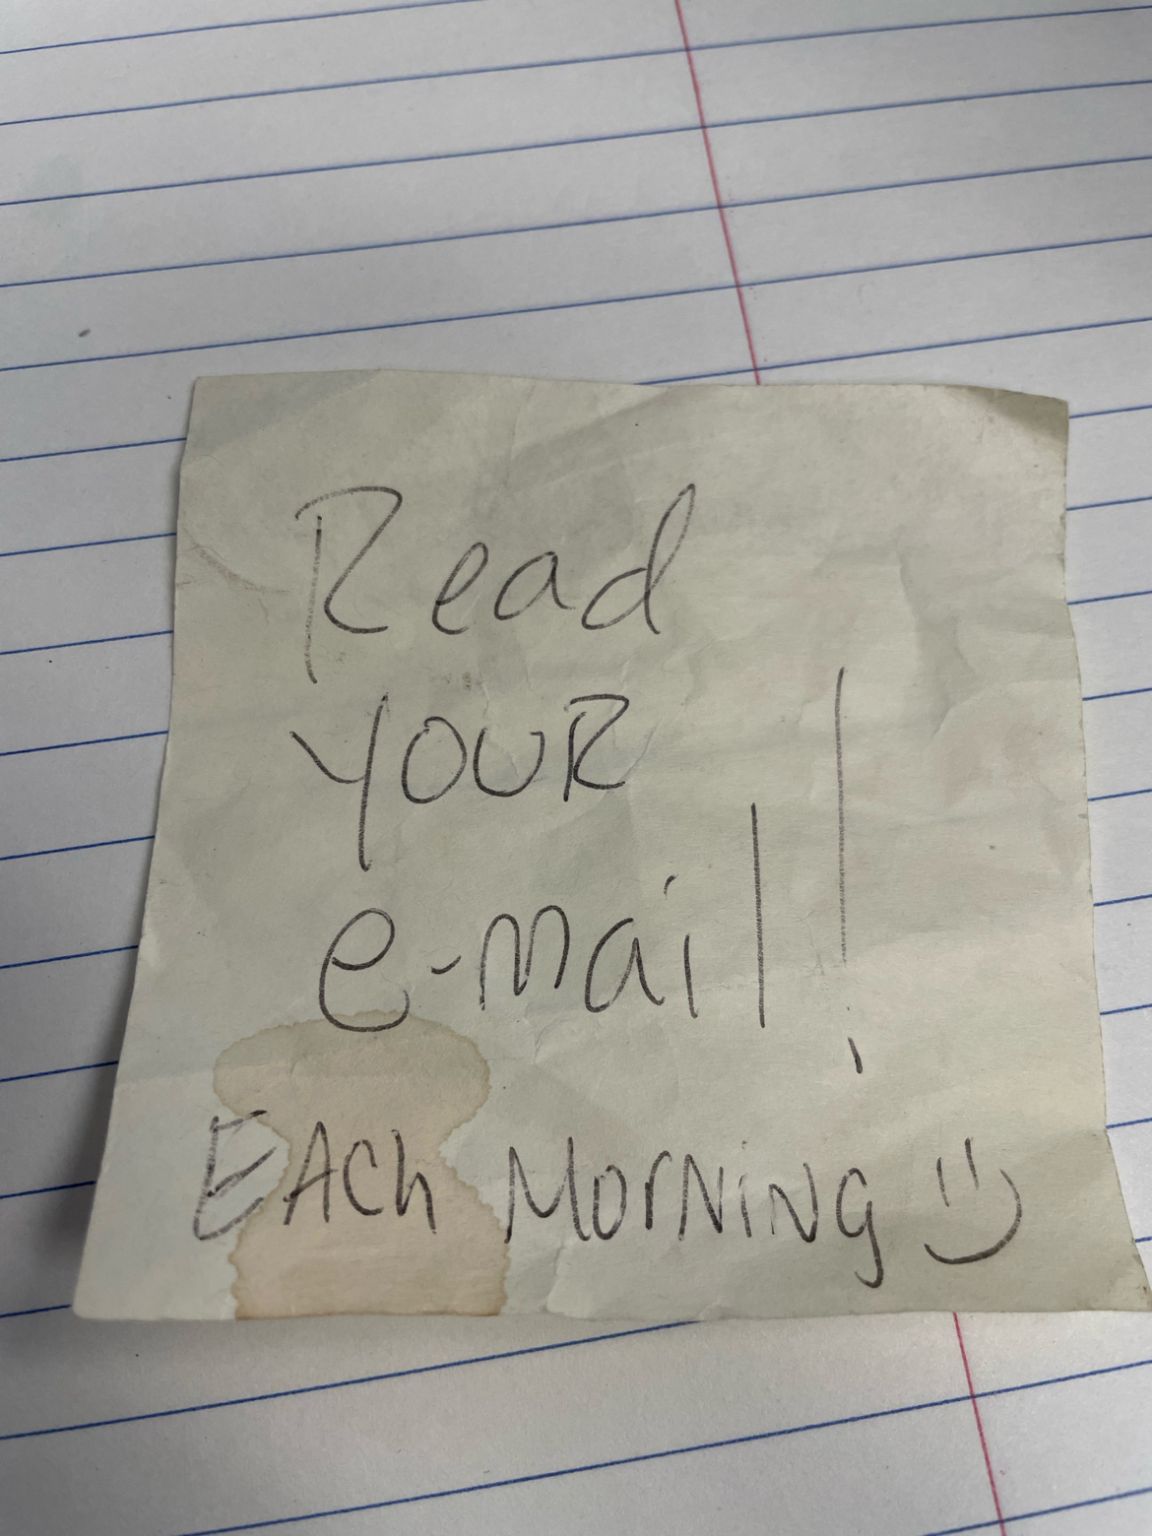 Read
YOUR
e-mail!
EACh MorNiNg :)